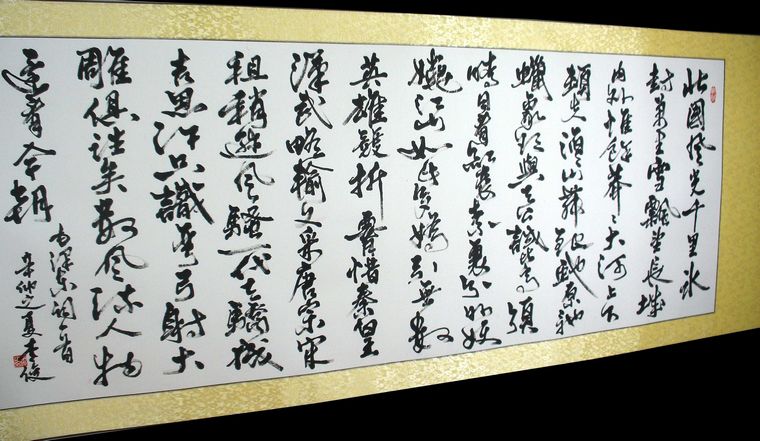 北國风光千里冰
封萬里雪飄望长城
内外惟馀莽〻大河上下
頓失滔〻山舞银蛇原馳
蠟象欲與天公試比高须
晴日看红裝素裹分外妖
娆江山如此多嬌引无数
英雄競折腰惜秦皇
漢武略輸文采唐宗宋
祖稍逊风騷一代天驕成
吉思汗只識弯弓射大
雕俱往矣数风流人物
還看今朝
毛泽东词一首
辛卯之夏